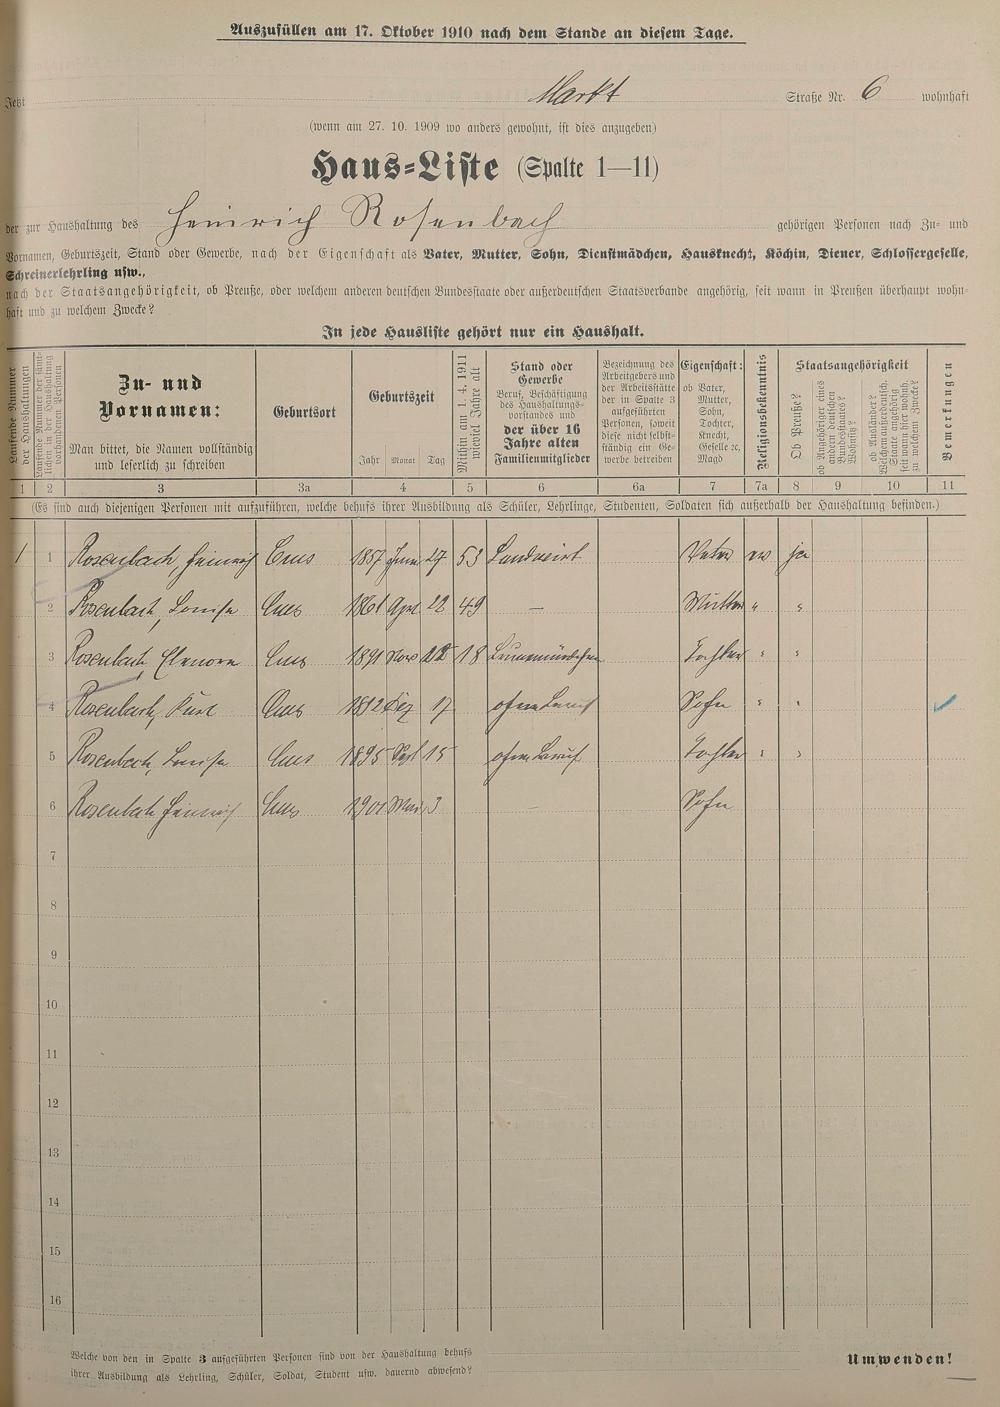 Auszufüllen am 17. Oktober 1910 nach dem Stande an diesem Tage.
Jetzt Markt Straße Nr. 6 wohnhaft
(wenn am 27. 10. 1909 wo anders gewohnt, ist dies anzugeben)
Haus-Liste (Spalte 1—11)
der zur Haushaltung des Heinrich Rosenbach gehörigen Personen nach Zu- und
Vornamen, Geburtszeit, Stand oder Gewerbe, nach der Eigenschaft als Vater, Mutter, Sohn, Dienstmädchen, Hausknecht, Köchin, Diener, Schlossergeselle,
Schreinerlehrling usw.,
nach der Staatsangehörigkeit, ob Preuße, oder welchem anderen deutschen Bundesstaate oder außerdeutschen Staatsverbande angehörig, seit wann in Preußen überhaupt wohn-
haft und zu welchem Zwecke?
In jede Hausliste gehört nur ein Haushalt.
Laufende Nummer der Haushaltungen
Laufende Nummer der sämt-
lichen in der Haushaltung
vorhandenen Personen
Zu- und
Vornamen:
Man bittet, die Namen vollständig
und leserlich zu schreiben
Geburtsort
Geburtszeit
Jahr Monat Tag
Mithin am 1. 4. 1911
wieviel Jahre alt
Stand oder
Gewerbe
Beruf, Beschäftigung
des Haushaltungs-
vorstandes und
der über 16
Jahre alten
Familienmitglieder
Bezeichnung des
Arbeitgebers und
der Arbeitsstätte
der in Spalte 3
aufgeführten
Personen, soweit
diese nicht selbst-
ständig ein Ge-
werbe betreiben
Eigenschaft:
ob Vater,
Mutter,
Sohn,
Tochter,
Knecht,
Geselle ꝛc,
Magd
Religionsbekenntnis
Staatsangehörigkeit
Ob Preuße?
ob Angehöriger eines
andern deutschen
Bundesstaates?
Wohnsitz?
ob Ausländer?
Welchem außerdeutsch.
Staate angehörig
seit wann hier wohnh.
zu welchem Zwecke?
Bemerkungen
1 2 3 3a 4 5 6 6a 7 7a 8 9 10 11
(Es sind auch diejenigen Personen mit aufzuführen, welche behufs ihrer Ausbildung als Schüler, Lehrlinge, Studenten, Soldaten sich außerhalb der Haushaltung befinden.)
1 1 Rosenbach, Heinrich Cues 1857 Juni 27 53 Landwirt Vater ev ja
2 Rosenbach, Louise Cues 1861 Apr. 22 49 — Mutter " "
3 Rosenbach, Elenore Cues 1891 Nov 18 Tochter " "
4 Rosenbach, Kurt Cues 1892 Dez 17 ohne Beruf Sohn " "
5 Rosenbach, Louise Cues 1895 Sept 15 ohne Beruf Tochter " "
6 Rosenbach Heinrich Cues 1901 Mai 3 — Sohn
7
8
9
10
11
12
13
14
15
16
Welche von den in Spalte 3 aufgeführten Personen sind von der Haushaltung behufs
ihrer Ausbildung als Lehrling, Schüler, Soldat, Student usw. dauernd abwesend?
Umwenden!